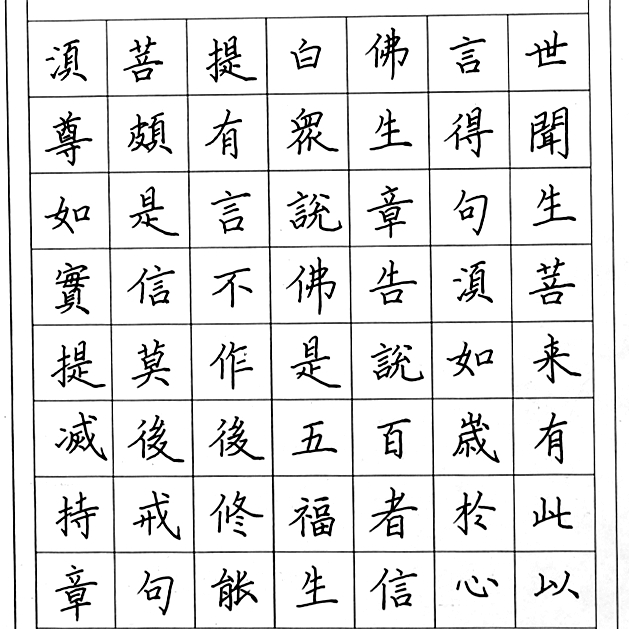 湏菩提白佛言世
尊頗有眾生得聞
如是言說章句生
實信不佛告湏菩
提莫作是說如来
滅後後五百歲有
持戒修福者於此
章句能生信心以